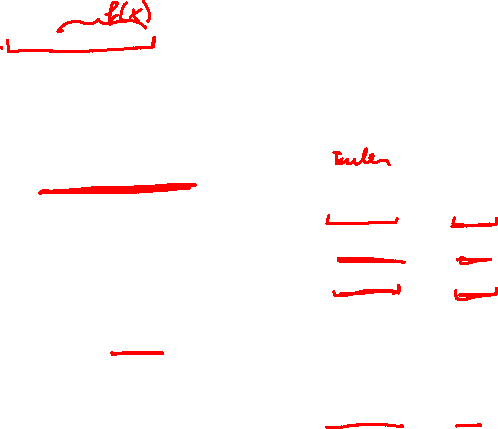 f(x)
Euler